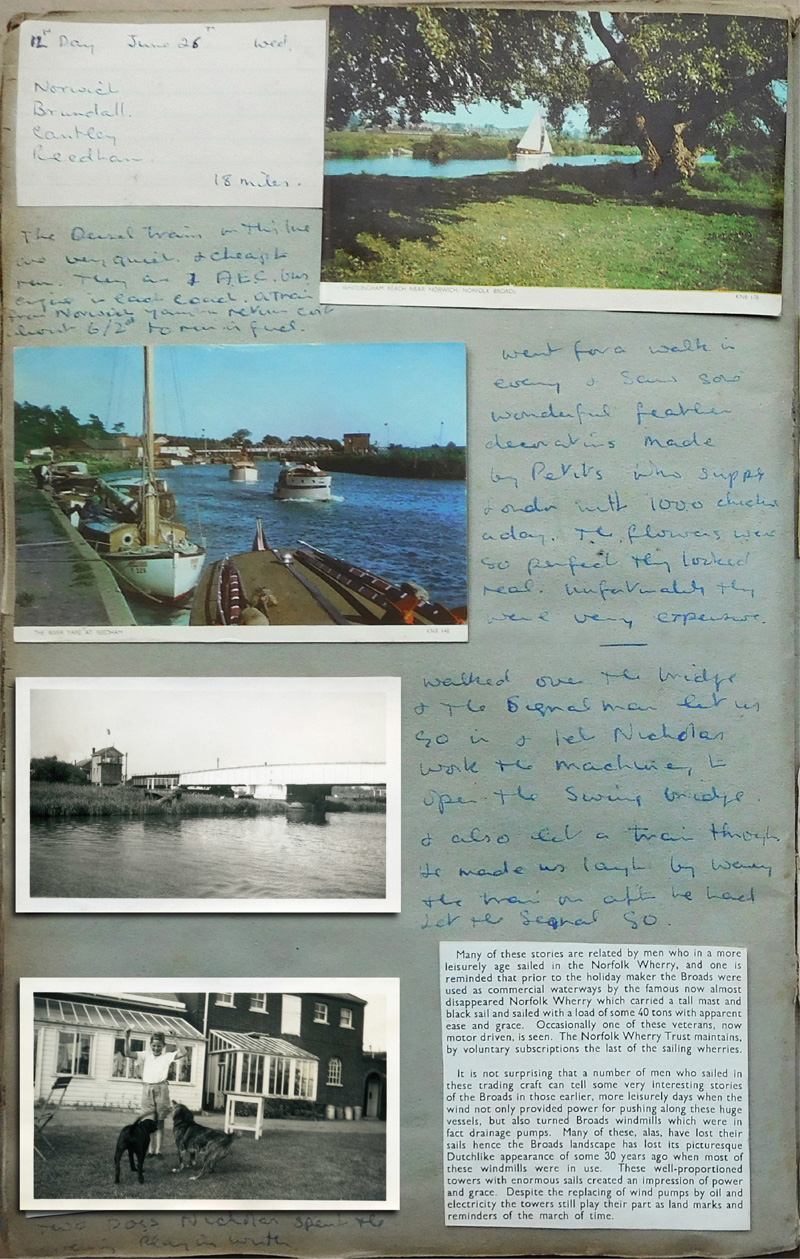 12th Day June 26th Wed.
Norwich
Brundall.
Cantley
Reedham.
18 miles.
WHITLINGHAM REACH NEAR NORWICH, NORFOLK BROADS
KNB 178
The Deisel trains on this line
are very quiet & cheap to
run. They are A.E.C. bus
engine in each coach. A train
from Norwich Yarmouth return cost
about 6/2d to run in fuel.
THE RIVER YARE AT REEDHAM
went for a walk in
evening & saw some
wonderful feather
decorations made
by Petits who supply
London with 1000 chickens
a day. The flowers were
so perfect they looked
real. Unfortunately they
were very expensive.
walked over the bridge
& the Signal man let us
go in & let Nicholas
work the machinery to
open the Swing bridge.
& also let a train through
He made us laugh by waving
the train on after he had
let the Signal go.
Many of these stories are related by men who in a more
leisurely age sailed in the Norfolk Wherry, and one is
reminded that prior to the holiday maker the Broads were
used as commercial waterways by the famous now almost
disappeared Norfolk Wherry which carried a tall mast and
black sail and sailed with a load of some 40 tons with apparent
ease and grace. Occasionally one of these veterans, now
motor driven, is seen. The Norfolk Wherry Trust maintains,
by voluntary subscriptions the last of the sailing wherries.
It is not surprising that a number of men who sailed in
these trading craft can tell some very interesting stories
of the Broads in those earlier, more leisurely days when the
wind not only provided power for pushing along these huge
vessels, but also turned Broads windmills which were in
fact drainage pumps. Many of these, alas, have lost their
sails hence the Broads landscape has lost its picturesque
Dutchlike appearance of some 30 years ago when most of
these windmills were in use. These well-proportioned
towers with enormous sails created an impression of power
and grace. Despite the replacing of wind pumps by oil and
electricity the towers still play their part as land marks and
reminders of the march of time.
Two Dogs Nicholas spent the
evening playing with